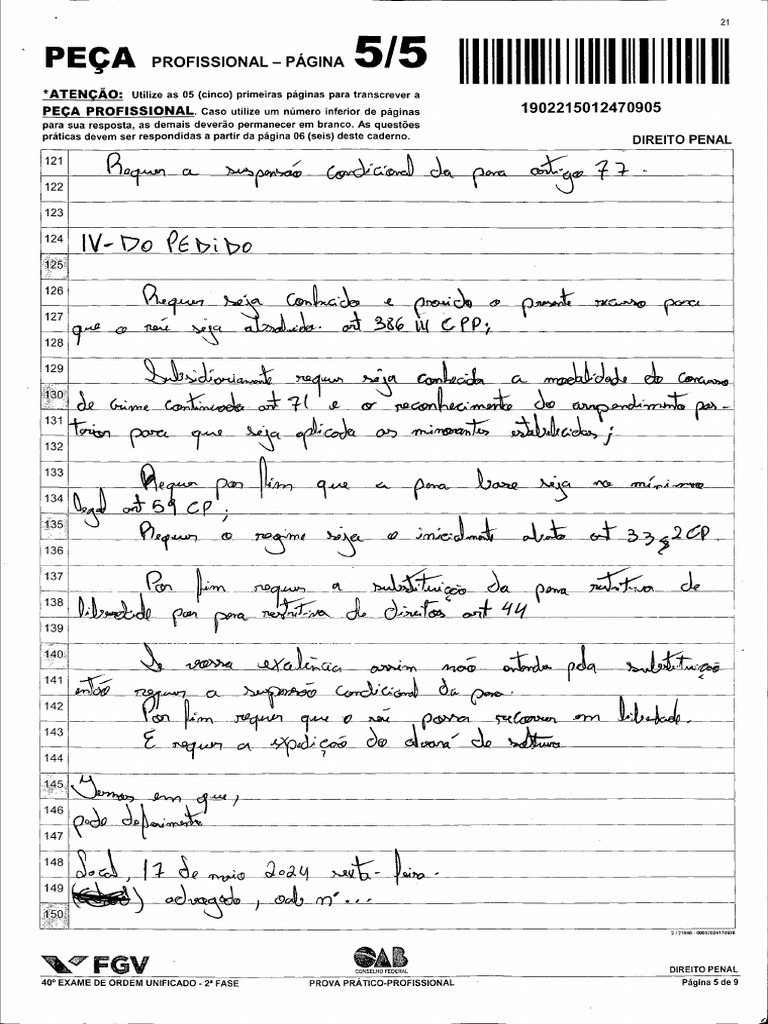 21
PEÇA PROFISSIONAL – PÁGINA 5/5
*ATENÇÃO: Utilize as 05 (cinco) primeiras páginas para transcrever a
PEÇA PROFISSIONAL. Caso utilize um número inferior de páginas
para sua resposta, as demais deverão permanecer em branco. As questões
práticas devem ser respondidas a partir da página 06 (seis) deste caderno.
1902215012470905
DIREITO PENAL
121 Requer a suspensão condicional da pena artigo 77.
122
123
124 IV- DO PEDiDO
125
126 Requer seja conhecido e provido o presente recurso para
127 que o réu seja absolvido. art 386 III CPP;
128
129 Subsidiariamente requer seja conhecida a modalidade do concurso
130 de crime continuado art 71 e o reconhecimento do arrependimento pos-
131 terior para que seja aplicada as minorantes estabelecidas;
132
133 Requer por fim que a pena base seja no mínimo
134 legal art 59 CP;
135 Requer o regime seja o inicialmente aberto art 33 § 2 CP.
136
137 Por fim requer a substituição da pena restritiva de
138 liberdade por pena restritiva de direitos art 44
139
140 Se vossa exalência assim não entenda pela substituição
141 então requer a suspensão condicional da pena.
142 Por fim requer que o réu possa recorrer em liberdade.
143 E requer a expedição do alvará de soltura
144
145 Termos em que,
146 pede deferimento
147
148 Local, 17 de maio 2024 sexta-feira.
149 advogado, oab nº...
150
2 / 21606 - 00952024170905
FGV
OAB
CONSELHO FEDERAL
DIREITO PENAL
40º EXAME DE ORDEM UNIFICADO - 2ª FASE
PROVA PRÁTICO-PROFISSIONAL
Página 5 de 9